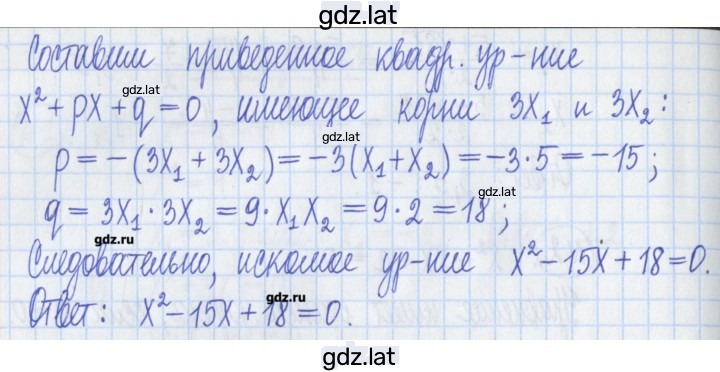 gdz.lat
Составим приведенное квадр. ур-ние
gdz.lat
x² + px + q = 0, имеющее корни 3x₁ и 3x₂:
gdz.lat
p = -(3x₁ + 3x₂) = -3(x₁ + x₂) = -3·5 = -15;
gdz.lat
q = 3x₁·3x₂ = 9·x₁x₂ = 9·2 = 18;
gdz.ru
Следовательно, искомое ур-ние x² - 15x + 18 = 0.
gdz.ru
Ответ: x² - 15x + 18 = 0.
gdz.lat